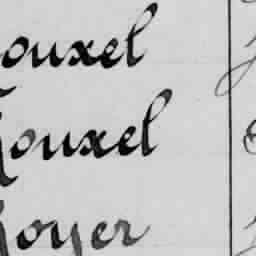 Rouxel
Rouxel
Royer